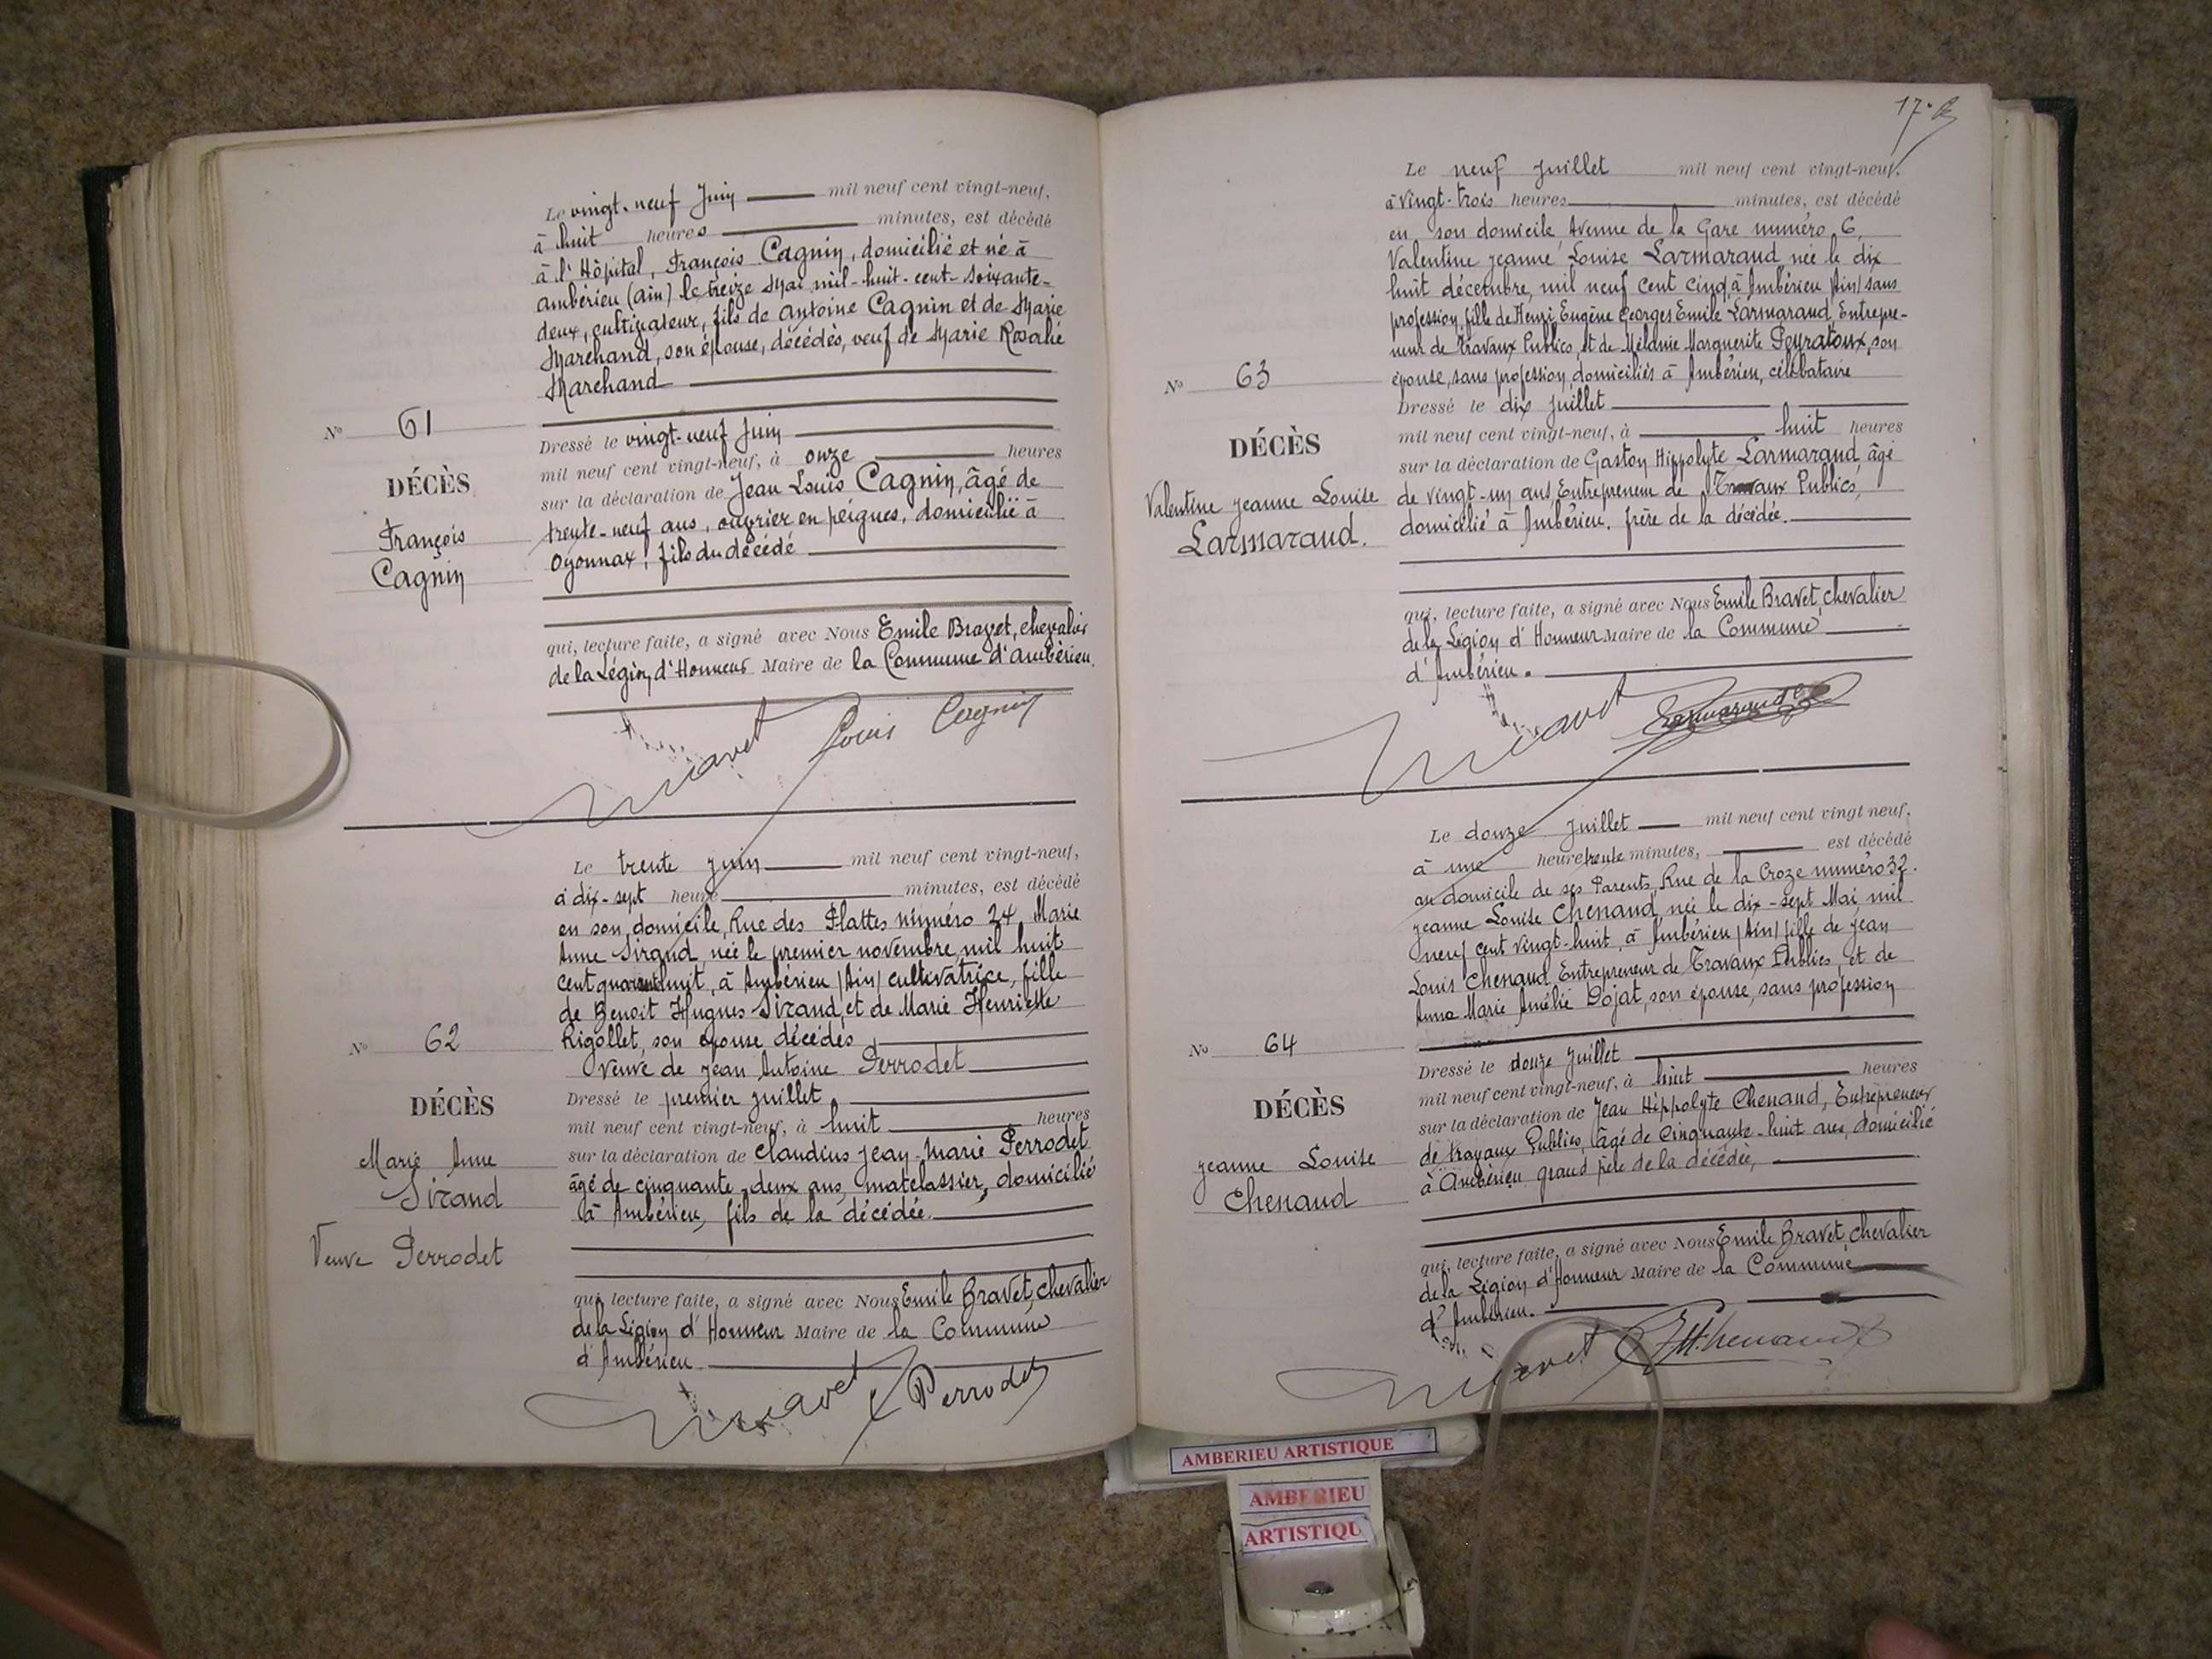 Le vingt-neuf Juin mil neuf cent vingt-neuf,
à huit heures minutes, est décédé
à l'Hôpital, François Cagnin, domicilié et né à
ambérieu (ain) le treize Mai mil-huit-cent-soixante-
deux, cultivateur, fils de Antoine Cagnin et de Marie
Marchand, son épouse, décédés, veuf de Marie Rosalie
Marchand
N° 61
DÉCÈS
François
Cagnin
Dressé le vingt-neuf Juin
mil neuf cent vingt-neuf, à onze heures
sur la déclaration de Jean Louis Cagnin, âgé de
trente-neuf ans, ouvrier en peignes, domicilié à
Oyonnax, fils du décédé
qui, lecture faite, a signé avec Nous Emile Bravet, chevalier
de la Légion d'Honneur Maire de la Commune d'ambérieu.
Bravet Louis Cagnin
Le trente juin mil neuf cent vingt-neuf,
à dix-sept heure minutes, est décédé
en son domicile, Rue des Plattes numéro 24, Marie
Anne Sirand, née le premier novembre mil huit
cent quarante huit, à Ambérieu /Ain/ cultivatrice, fille
de Benoit Hugues Sirand, et de Marie Henriette
Rigollet, son épouse décédés
Veuve de Jean Antoine Perrodet
N° 62
DÉCÈS
Marie Anne
Sirand
Veuve Perrodet
Dressé le premier juillet
mil neuf cent vingt-neuf, à huit heures
sur la déclaration de Claudius Jean-Marie Perrodet
âgé de cinquante-deux ans, matelassier, domicilié
à Ambérieu, fils de la décédée.
qui, lecture faite, a signé avec Nous Emile Bravet, chevalier
de la Légion d'Honneur Maire de la Commune
d'Ambérieu
Bravet Perrodet
17.
Le neuf Juillet mil neuf cent vingt-neuf,
à Vingt-trois heures minutes, est décédé
en son domicile, Avenue de la Gare numéro 6,
Valentine Jeanne Louise Larmaraud née le dix
huit décembre, mil neuf cent cinq à Ambérieu /Ain/ sans
profession, fille de Henri Eugène Georges Emile Larmaraud, Entrepre-
neur de Travaux Publics, et de Mélanie Marguerite Peyratoux, son
épouse, sans profession, domiciliés à Ambérieu, célibataire
N° 63
DÉCÈS
Valentine Jeanne Louise
Larmaraud.
Dressé le dix Juillet
mil neuf cent vingt-neuf, à huit heures
sur la déclaration de Gaston Hippolyte Larmaraud, âgé
de vingt-un ans, Entrepreneur de Travaux Publics,
domicilié à Ambérieu. frère de la décédée.
qui, lecture faite, a signé avec Nous Emile Bravet, chevalier
de la Légion d'Honneur Maire de la Commune
d'Ambérieu.
Bravet Larmaraud
Le douze Juillet mil neuf cent vingt neuf,
à une heure trente minutes, est décédé
au domicile de ses Parents, Rue de la Croze numéro 32.
Jeanne Louise Chenaud née le dix-sept Mai, mil
neuf cent vingt-huit, à Ambérieu /Ain/ fille de Jean
Louis Chenaud, Entrepreneur de Travaux Publics, et de
Anna Marie Amélie Dojat, son épouse, sans profession
N° 64
DÉCÈS
Jeanne Louise
Chenaud
Dressé le douze Juillet
mil neuf cent vingt-neuf, à huit heures
sur la déclaration de Jean Hippolyte Chenaud, Entrepreneur
de travaux Publics, âgé de Cinquante-huit ans, domicilié
à Ambérieu grand père de la décédée,
qui, lecture faite, a signé avec Nous Emile Bravet, chevalier
de la Légion d'Honneur Maire de la Commune
d'Ambérieu.
Bravet Chenaud
AMBERIEU ARTISTIQUE
AMBERIEU
ARTISTIQU